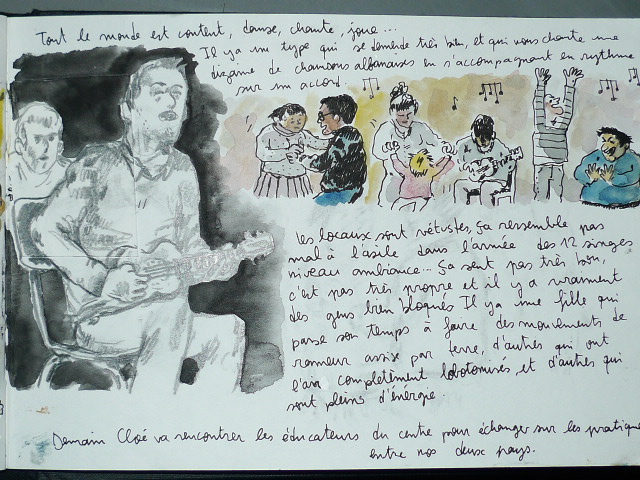 Tout le monde est content, danse, chante, joue...
Il y a un type qui se démerde très bien, et qui vous chante une
dizaine de chansons albanaises en s'accompagnant en rythme
sur un accord.
Les locaux sont vétustes, ça ressemble pas
mal à l'asile dans l'armée des 12 singes
niveau ambiance... ça sent pas très bon,
c'est pas très propre et il y a vraiment
des gens bien bloqués Il y a une fille qui
passe son temps à faire des mouvements de
rameur assise par terre, d'autres qui ont
l'air complètement lobotomisés, et d'autres qui
sont pleins d'énergie.
Demain Cloé va rencontrer les éducateurs du centre pour échanger sur les pratiques
entre nos deux pays.